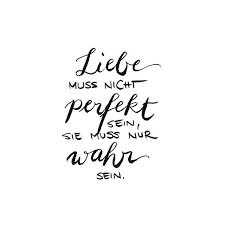 Liebe
MUSS NICHT
perfekt
SEIN,
SIE MUSS NUR
wahr
SEIN.